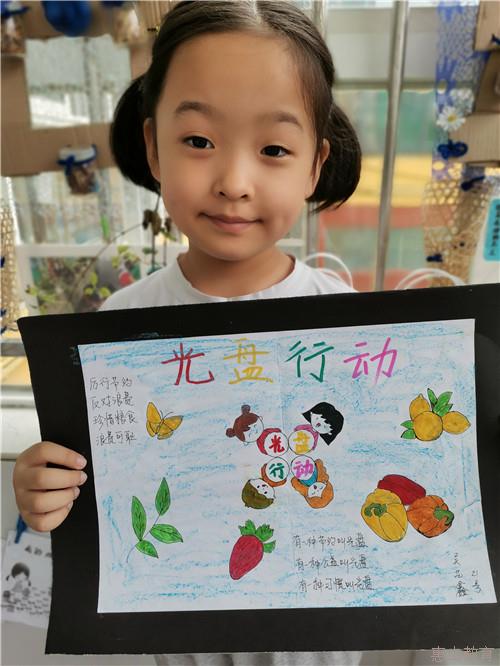 光盘行动
厉行节约
反对浪费
珍惜粮食
浪费可耻
光盘
行动
有一种节约叫光盘
有一种公益叫光盘
有一种习惯叫光盘
21号